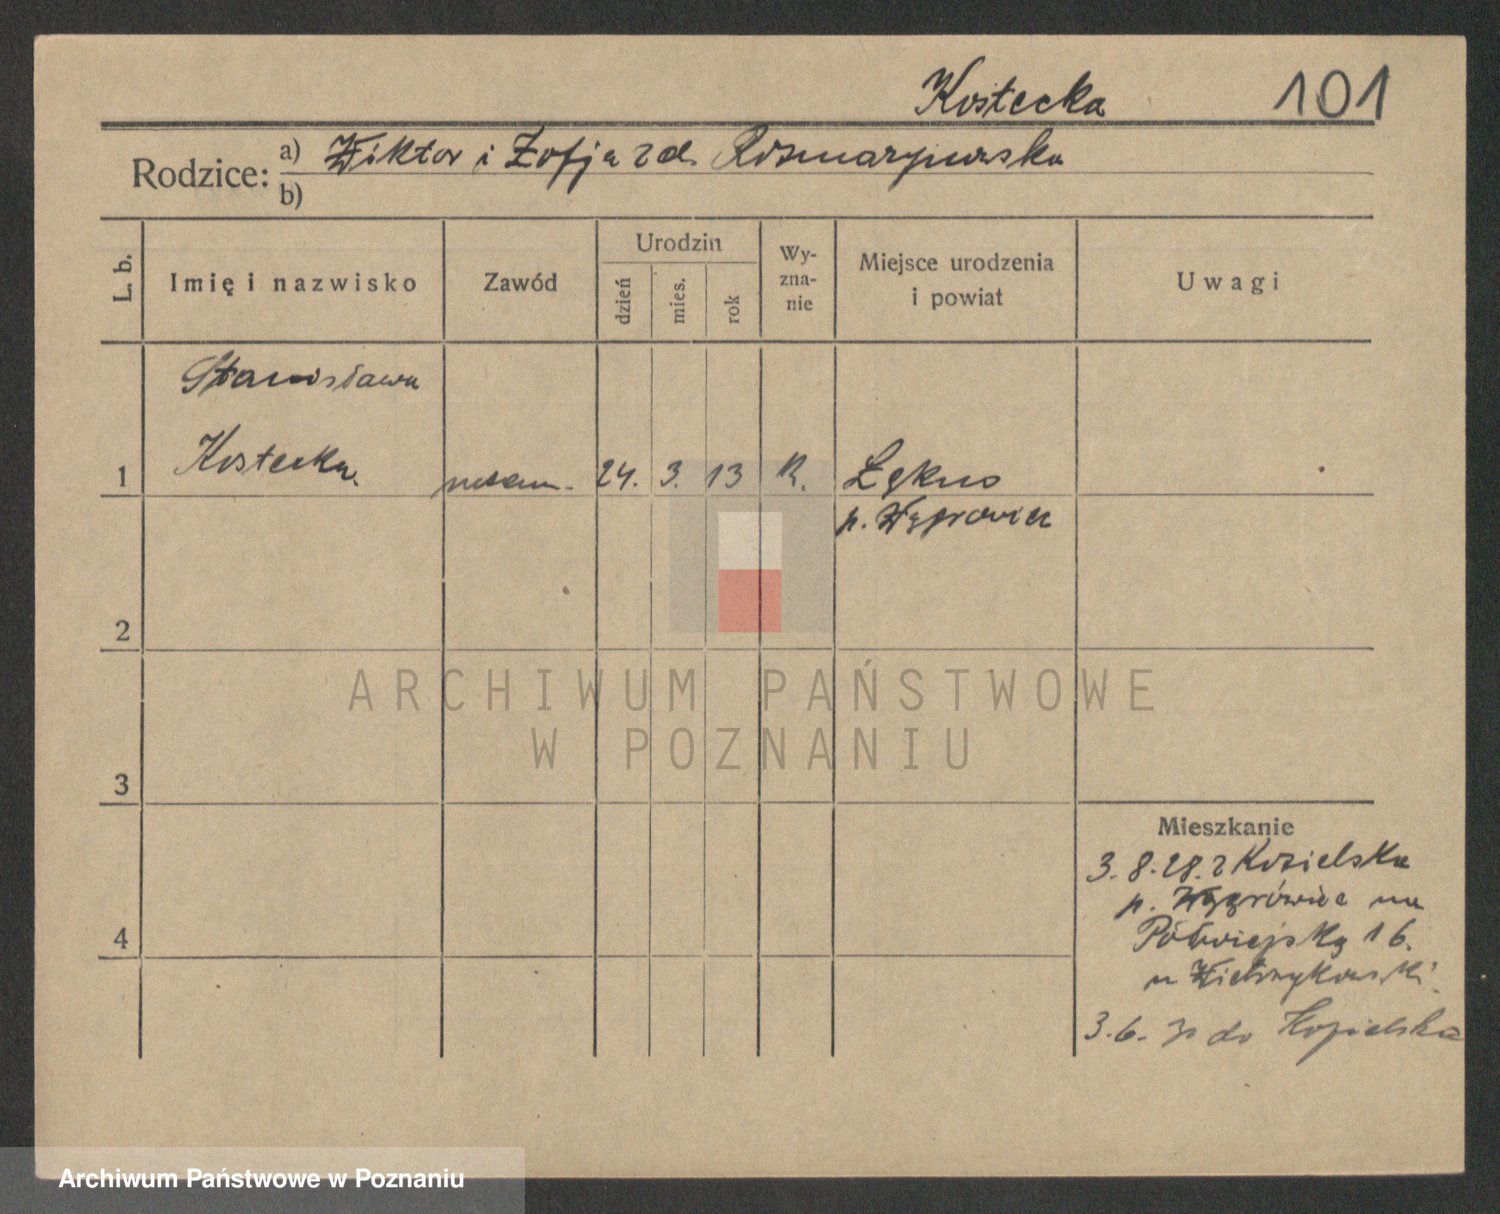 Kostecka 101
Rodzice: a) Wiktor i Zofja z d.
b)
L. b.
Imię i nazwisko
Zawód
Urodzin
dzień
mies.
rok
Wy-
zna-
nie
Miejsce urodzenia
i powiat
Uwagi
Stanisława
1 Kostecka 24. 3. 13 R. Łękno
p. Wągrowiec
2
3
4
Mieszkanie
3.8.28. z Kozielska
p. Wągrówiec na
Półwiejską 16.
u
3.6. do Kopielska
ARCHIWUM PAŃSTWOWE
W POZNANIU
Archiwum Państwowe w Poznaniu